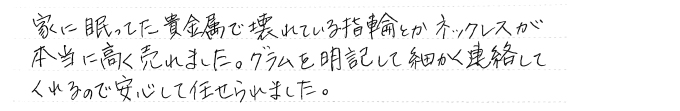 家に眠ってた貴金属で壊れている指輪とかネックレスが
本当に高く売れました。グラムを明記して細かく連絡して
くれるので安心して任せられました。